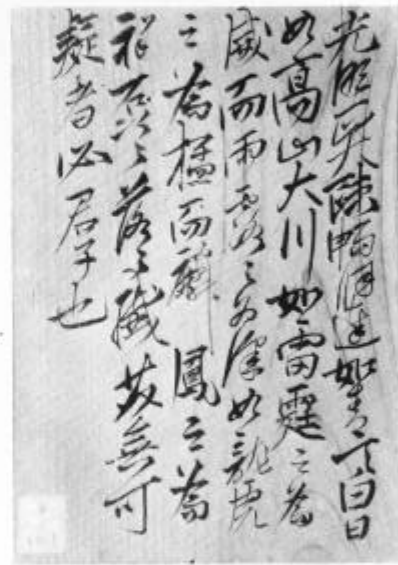 光明正大疎暢洞達如青天白日
如高山大川如雷霆之為
威而雨露之為澤如龍虎
之為猛而麟鳳之為
祥磊々落々纖芥無可
疑者必君子也